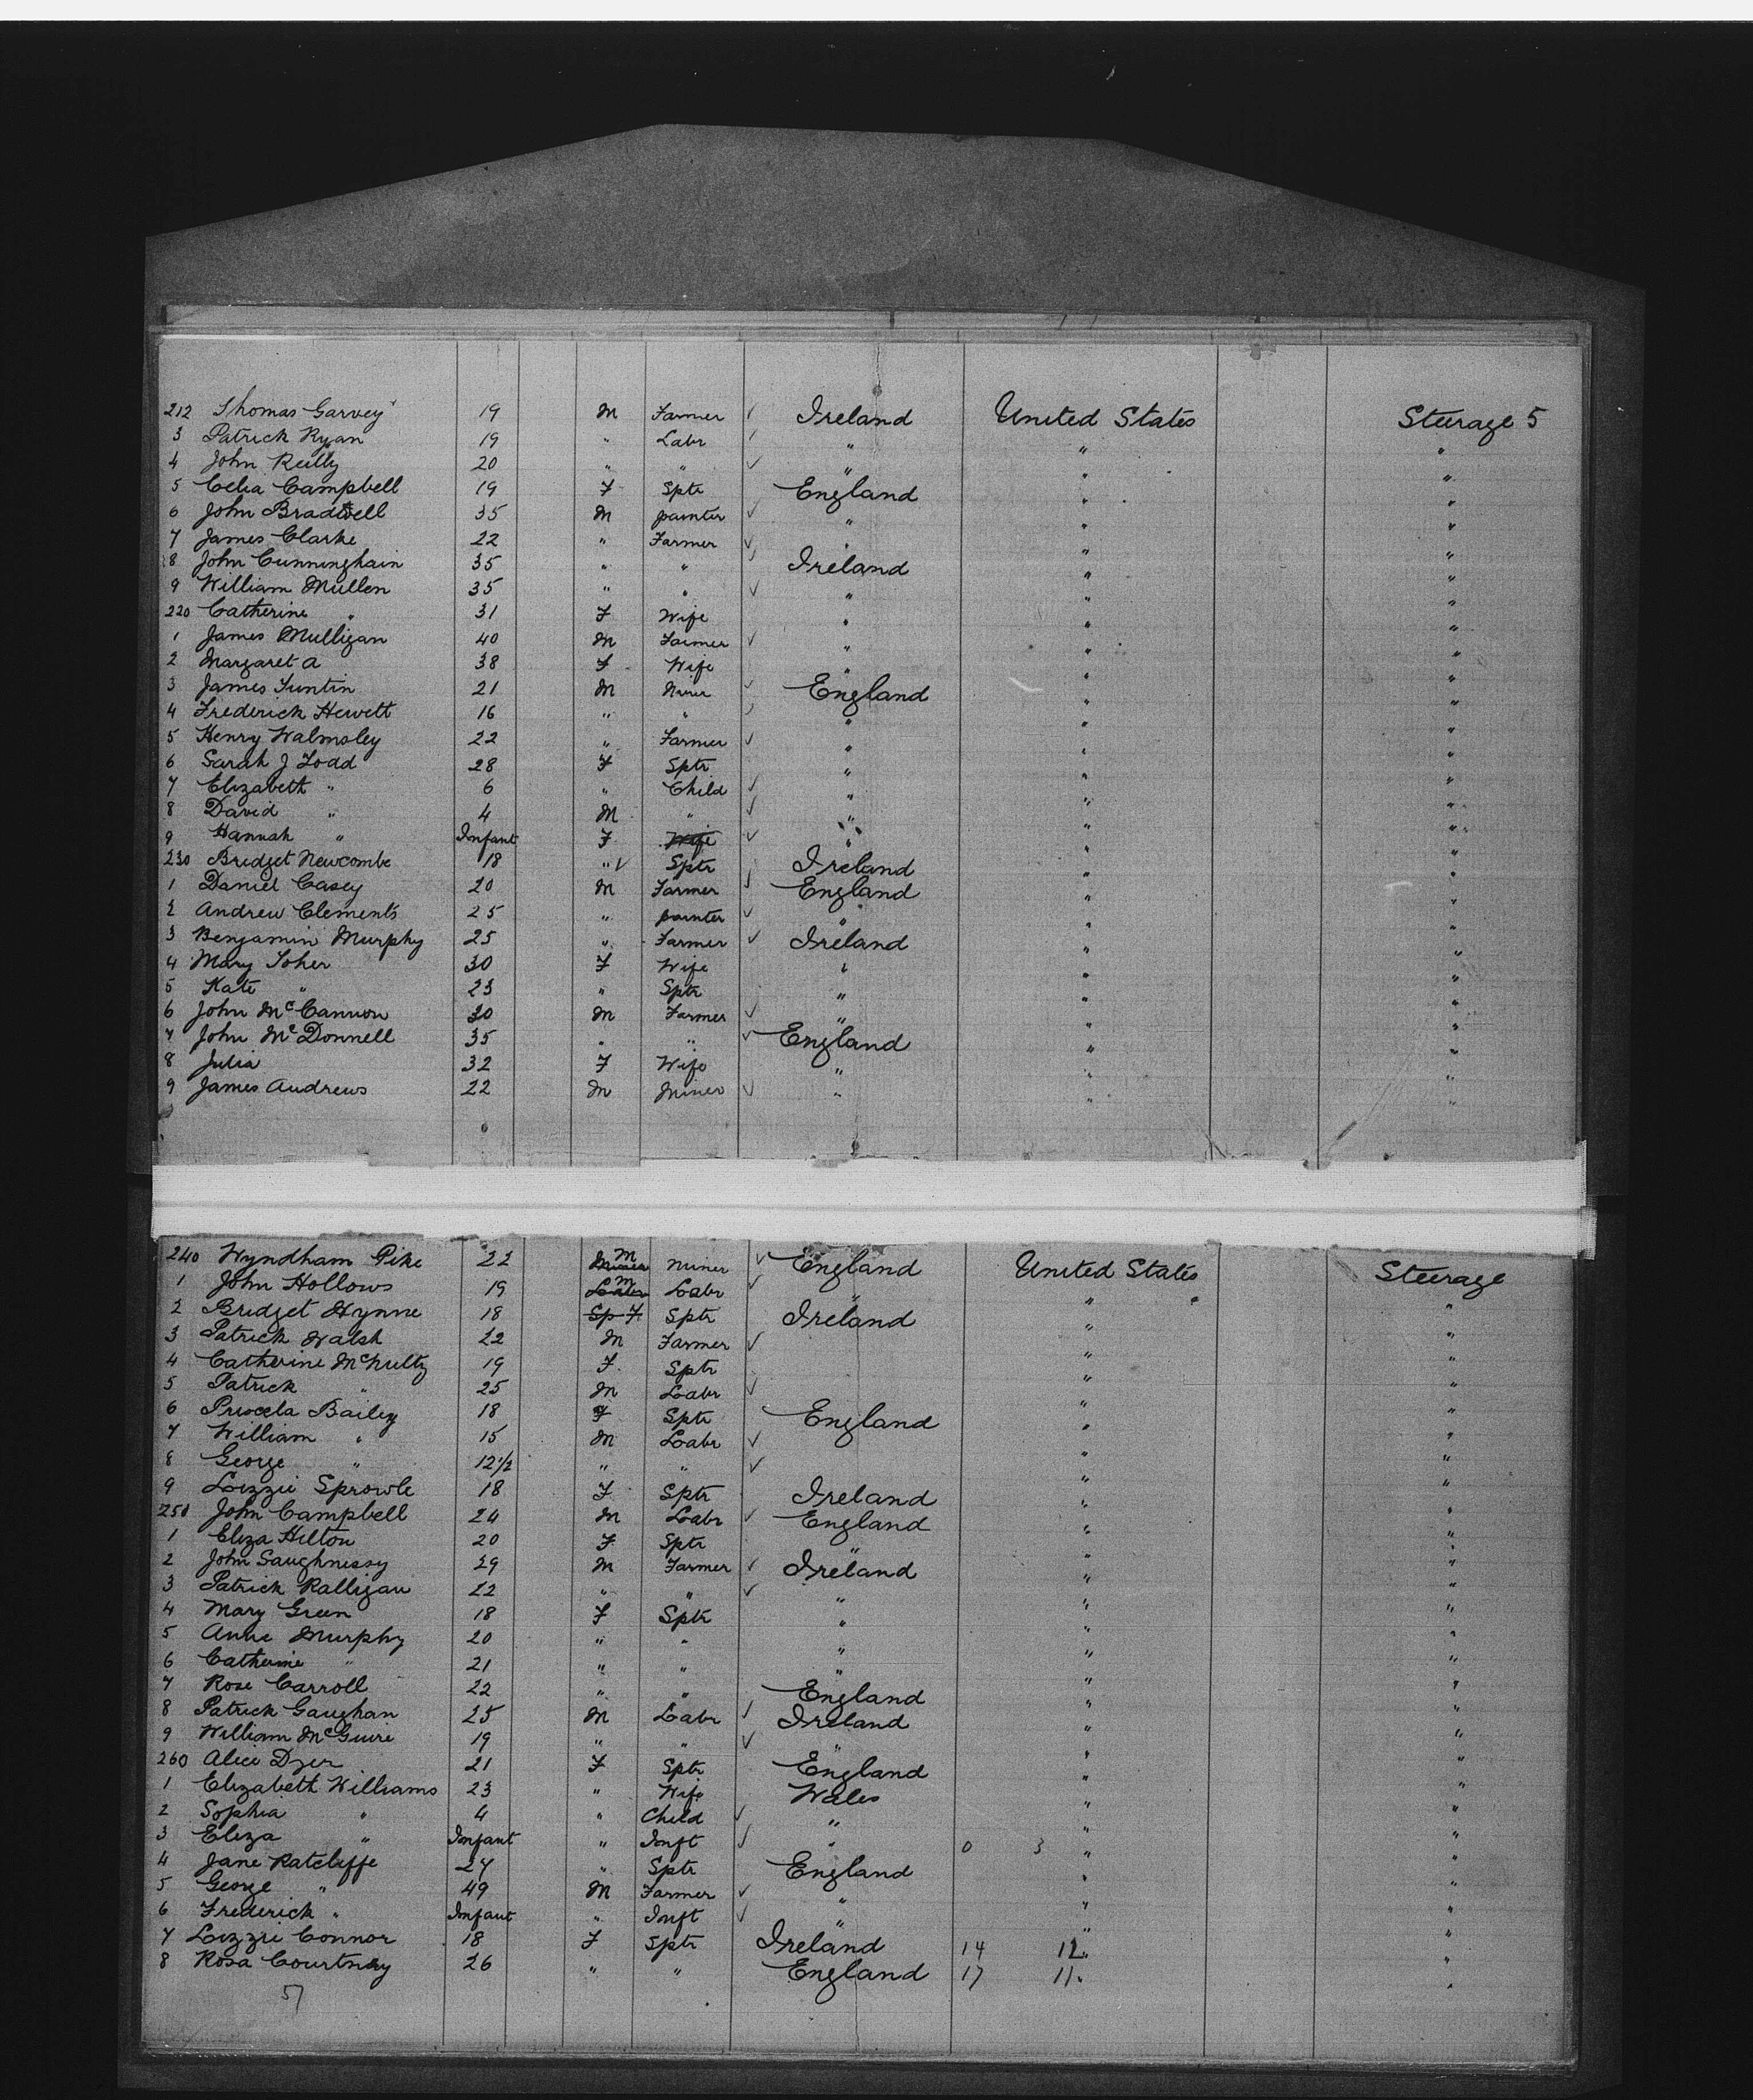 212 Thomas Garvey 19 M Farmer ✓ Ireland United States Steerage 5
3 Patrick Ryan 19 " Labr ✓ " " "
4 John Reilly 20 " " ✓ " " "
5 Celia Campbell 19 F Sptr England " "
6 John Bradwell 35 M painter ✓ " " "
7 James Clarke 22 " Farmer ✓ " " "
8 John Cunningham 35 " " ✓ Ireland " "
9 William Mullen 35 " " ✓ " " "
220 Catherine " 31 F Wife " " "
1 James Mulligan 40 M Farmer ✓ " " "
2 Margaret A 38 F Wife " " "
3 James Tuntin 21 M Miner ✓ England " "
4 Frederick Hewett 16 " " ✓ " " "
5 Henry Walmsley 22 " Farmer ✓ " " "
6 Sarah J Todd 28 F Sptr " " "
7 Elizabeth " 6 " Child ✓ " " "
8 David " 4 M " ✓ " " "
9 Hannah " Infant F Wife ✓ " " "
230 Bridget Newcombe 18 " ✓ Sptr Ireland " "
1 Daniel Casey 20 M Farmer ✓ England " "
2 Andrew Clements 25 " painter ✓ " " "
3 Benjamin Murphy 25 " Farmer ✓ Ireland " "
4 Mary Toher 30 F Wife " " "
5 Kate " 23 " Sptr " " "
6 John McCannon 30 M Farmer ✓ " " "
7 John McDonnell 35 " " ✓ England " "
8 Julia 32 F Wife " " "
9 James Andrews 22 M Miner ✓ " " "
240 Wyndham Pike 22 M Miner ✓ England United States Steerage
1 John Hollows 19 M Labr ✓ " " "
2 Bridget Hynne 18 Sp F Sptr Ireland " "
3 Patrick Walsh 22 M Farmer ✓ " "
4 Catherine McNulty 19 F Sptr " "
5 Patrick " 25 M Labr ✓ " "
6 Priscela Bailey 18 F Sptr England " "
7 William " 15 M Labr ✓ " "
8 George " 12½ " " ✓ " "
9 Lizzie Sprowle 18 F Sptr Ireland " "
250 John Campbell 24 M Labr ✓ England " "
1 Eliza Hilton 20 F Sptr " " "
2 John Saughnessy 29 M Farmer ✓ Ireland " "
3 Patrick Ralligan 22 " " ✓ " " "
4 Mary Green 18 F Sptr " " "
5 Anne Murphy 20 " " " " "
6 Catherine " 21 " " " " "
7 Rose Carroll 22 " " England " "
8 Patrick Gaughan 25 M Labr ✓ Ireland " "
9 William McGuire 19 " " ✓ " " "
260 Alice Dyer 21 F Sptr England " "
1 Elizabeth Williams 23 " Wife Wales " "
2 Sophia " 4 " Child ✓ " " "
3 Eliza " Infant " Inft ✓ " 0 3 " "
4 Jane Ratcliffe 27 " Sptr England " "
5 George " 49 M Farmer ✓ " " "
6 Frederick " Infant " Inft ✓ " " "
7 Lizzie Connor 18 F Sptr Ireland 14 12 "
8 Rosa Courtnay 26 " " England 17 11 "
57